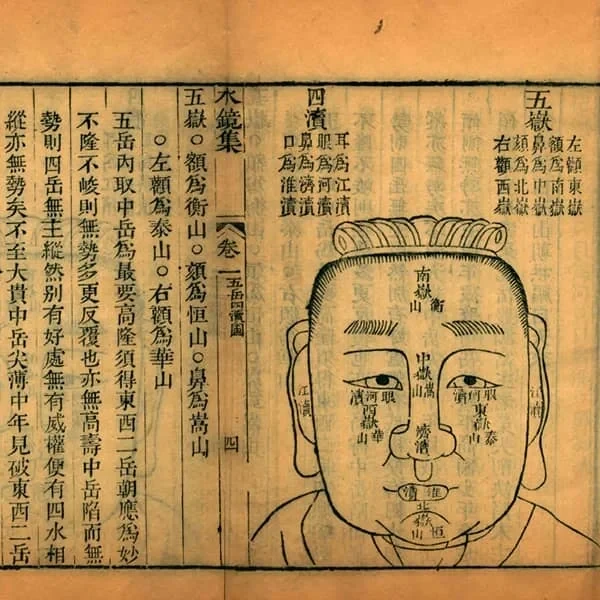 五嶽
左顴東嶽
額爲南嶽
鼻爲中嶽
頦爲北嶽
右顴西嶽
四瀆
耳爲江瀆
眼爲河瀆
鼻爲濟瀆
口爲淮瀆
南嶽衡山
中嶽嵩山
眼河瀆
東嶽泰山
眼河瀆
西嶽華山
江瀆
江瀆
濟瀆
淮瀆
北嶽恒山
水鏡集
卷一
五岳四瀆圖
四
五嶽○額爲衡山○頦爲恒山○鼻爲嵩山
○左顴爲泰山○右顴爲華山
五岳內取中岳爲最要高隆須得東西二岳朝應爲妙
不隆不峻則無勢多更反覆也亦無高壽中岳陷而無
勢則四岳無主縱然别有好處無有威權便有四水相
縱亦無勢矣不至大貴中岳尖薄中年見破東西二岳